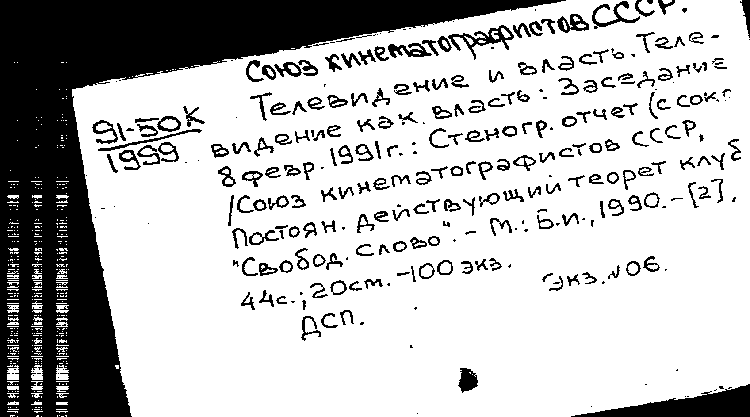 Союз кинематографистов СССР.
91-50К
1999
Телевидение и власть. Теле-
видение как власть: Заседание
8 февр. 1991г.: Стеногр. отчет (с сокр
/Союз кинематографистов СССР,
Постоян. действующий теорет клуб
"Свобод. слово". - М.: Б.и., 1990. - [2],
44с.; 20см. - 100 экз.
Экз. №06.
ДСП.